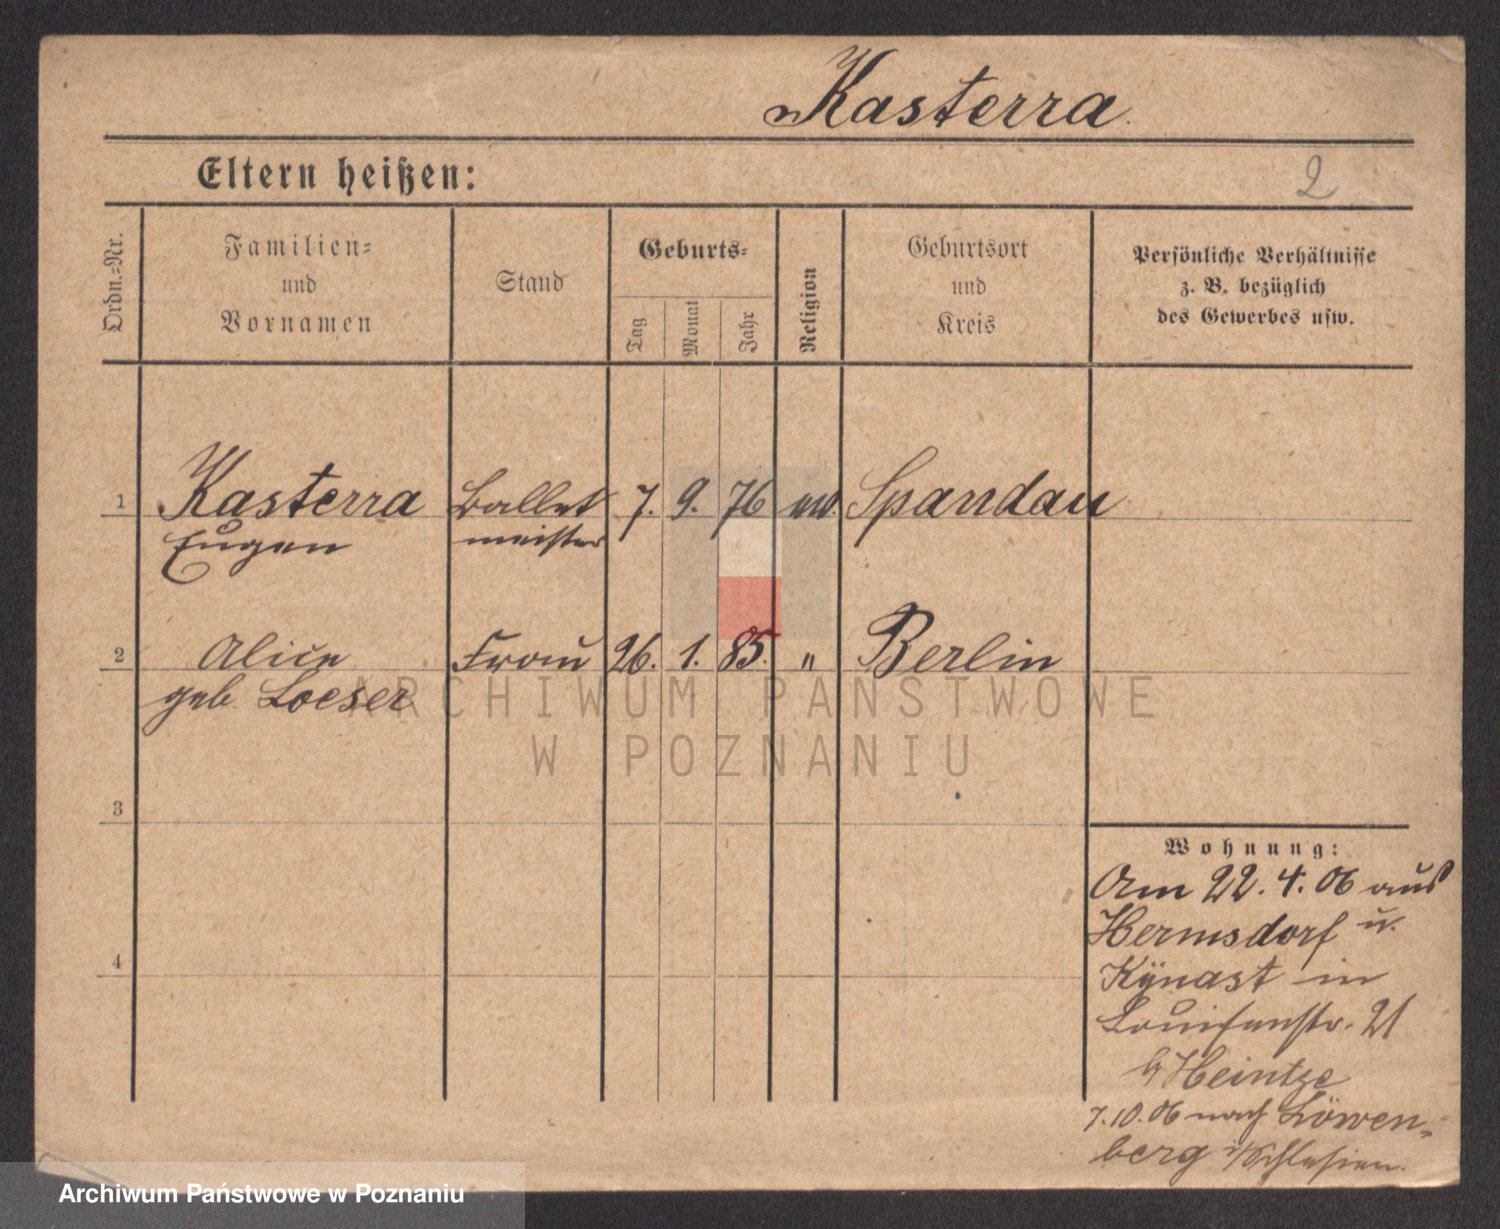 Kasterra.
Eltern heißen:
2
Ordn.-Nr.
Familien-
und
Vornamen
Stand
Geburts-
Tag
Monat
Jahr
Religion
Geburtsort
und
Kreis
Persönliche Verhältnisse
z. B. bezüglich
des Gewerbes usw.
1 Kasterra Ballet 7. 9. 76 Spandau
Eugen meister
2 Alice Frau 26. 1. 85. " Berlin
geb. Loeser
ARCHIWUM PAŃSTWOWE
W POZNANIU
3
4
Wohnung:
Am 22. 4. 06 aus
Hermsdorf u.
Kÿnast in
Louisenstr. 21
b/ Heintze
7.10.06 nach Löwen-
berg i/Schlesien.
Archiwum Państwowe w Poznaniu